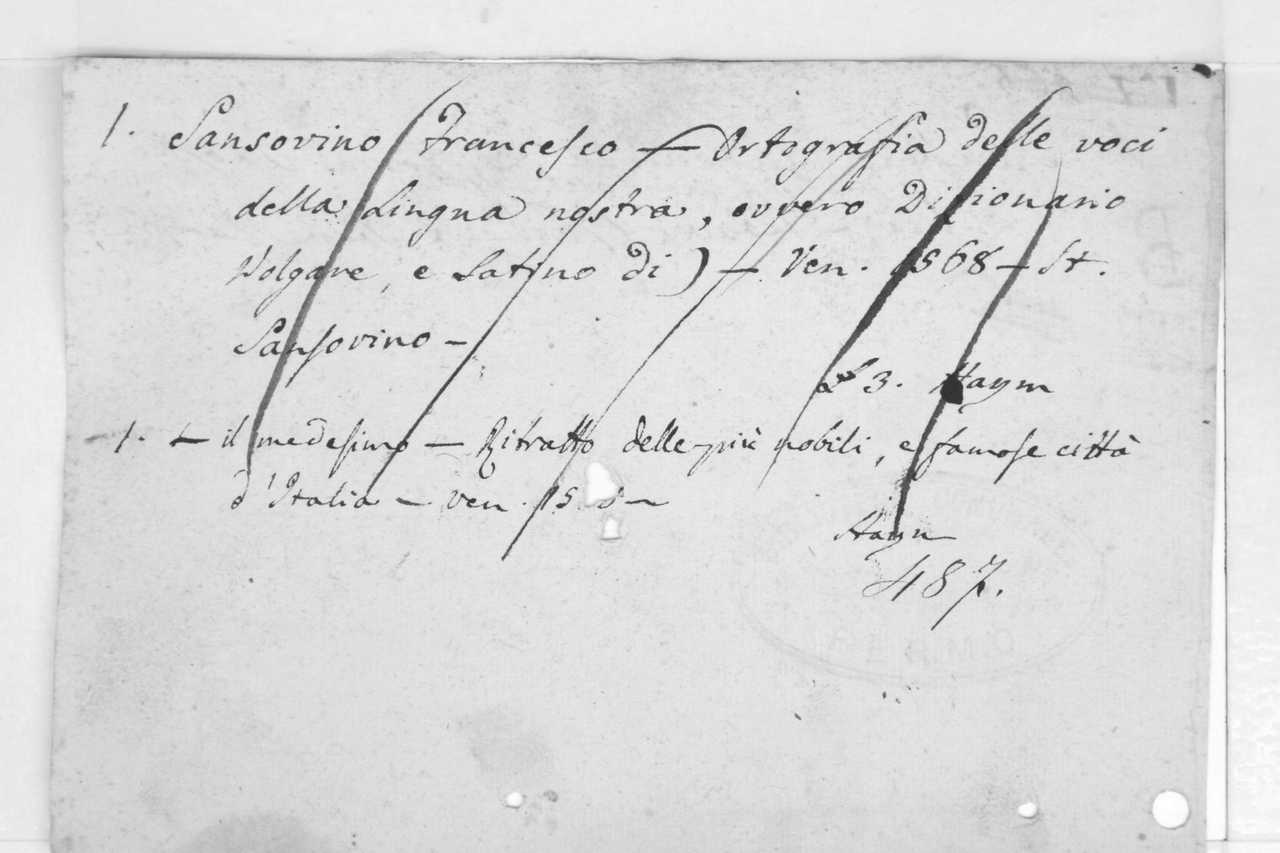 1. Sansovino (Francesco — Ortografia delle voci
della Lingua nostra, ovvero Dizionario
Volgare, e Latino di) — Ven. 1568 — St.
Sansovino —
L 3. Haym
1. — il medesimo — Ritratto delle più nobili, e famose città
d'Italia — ven.
Haym
487.